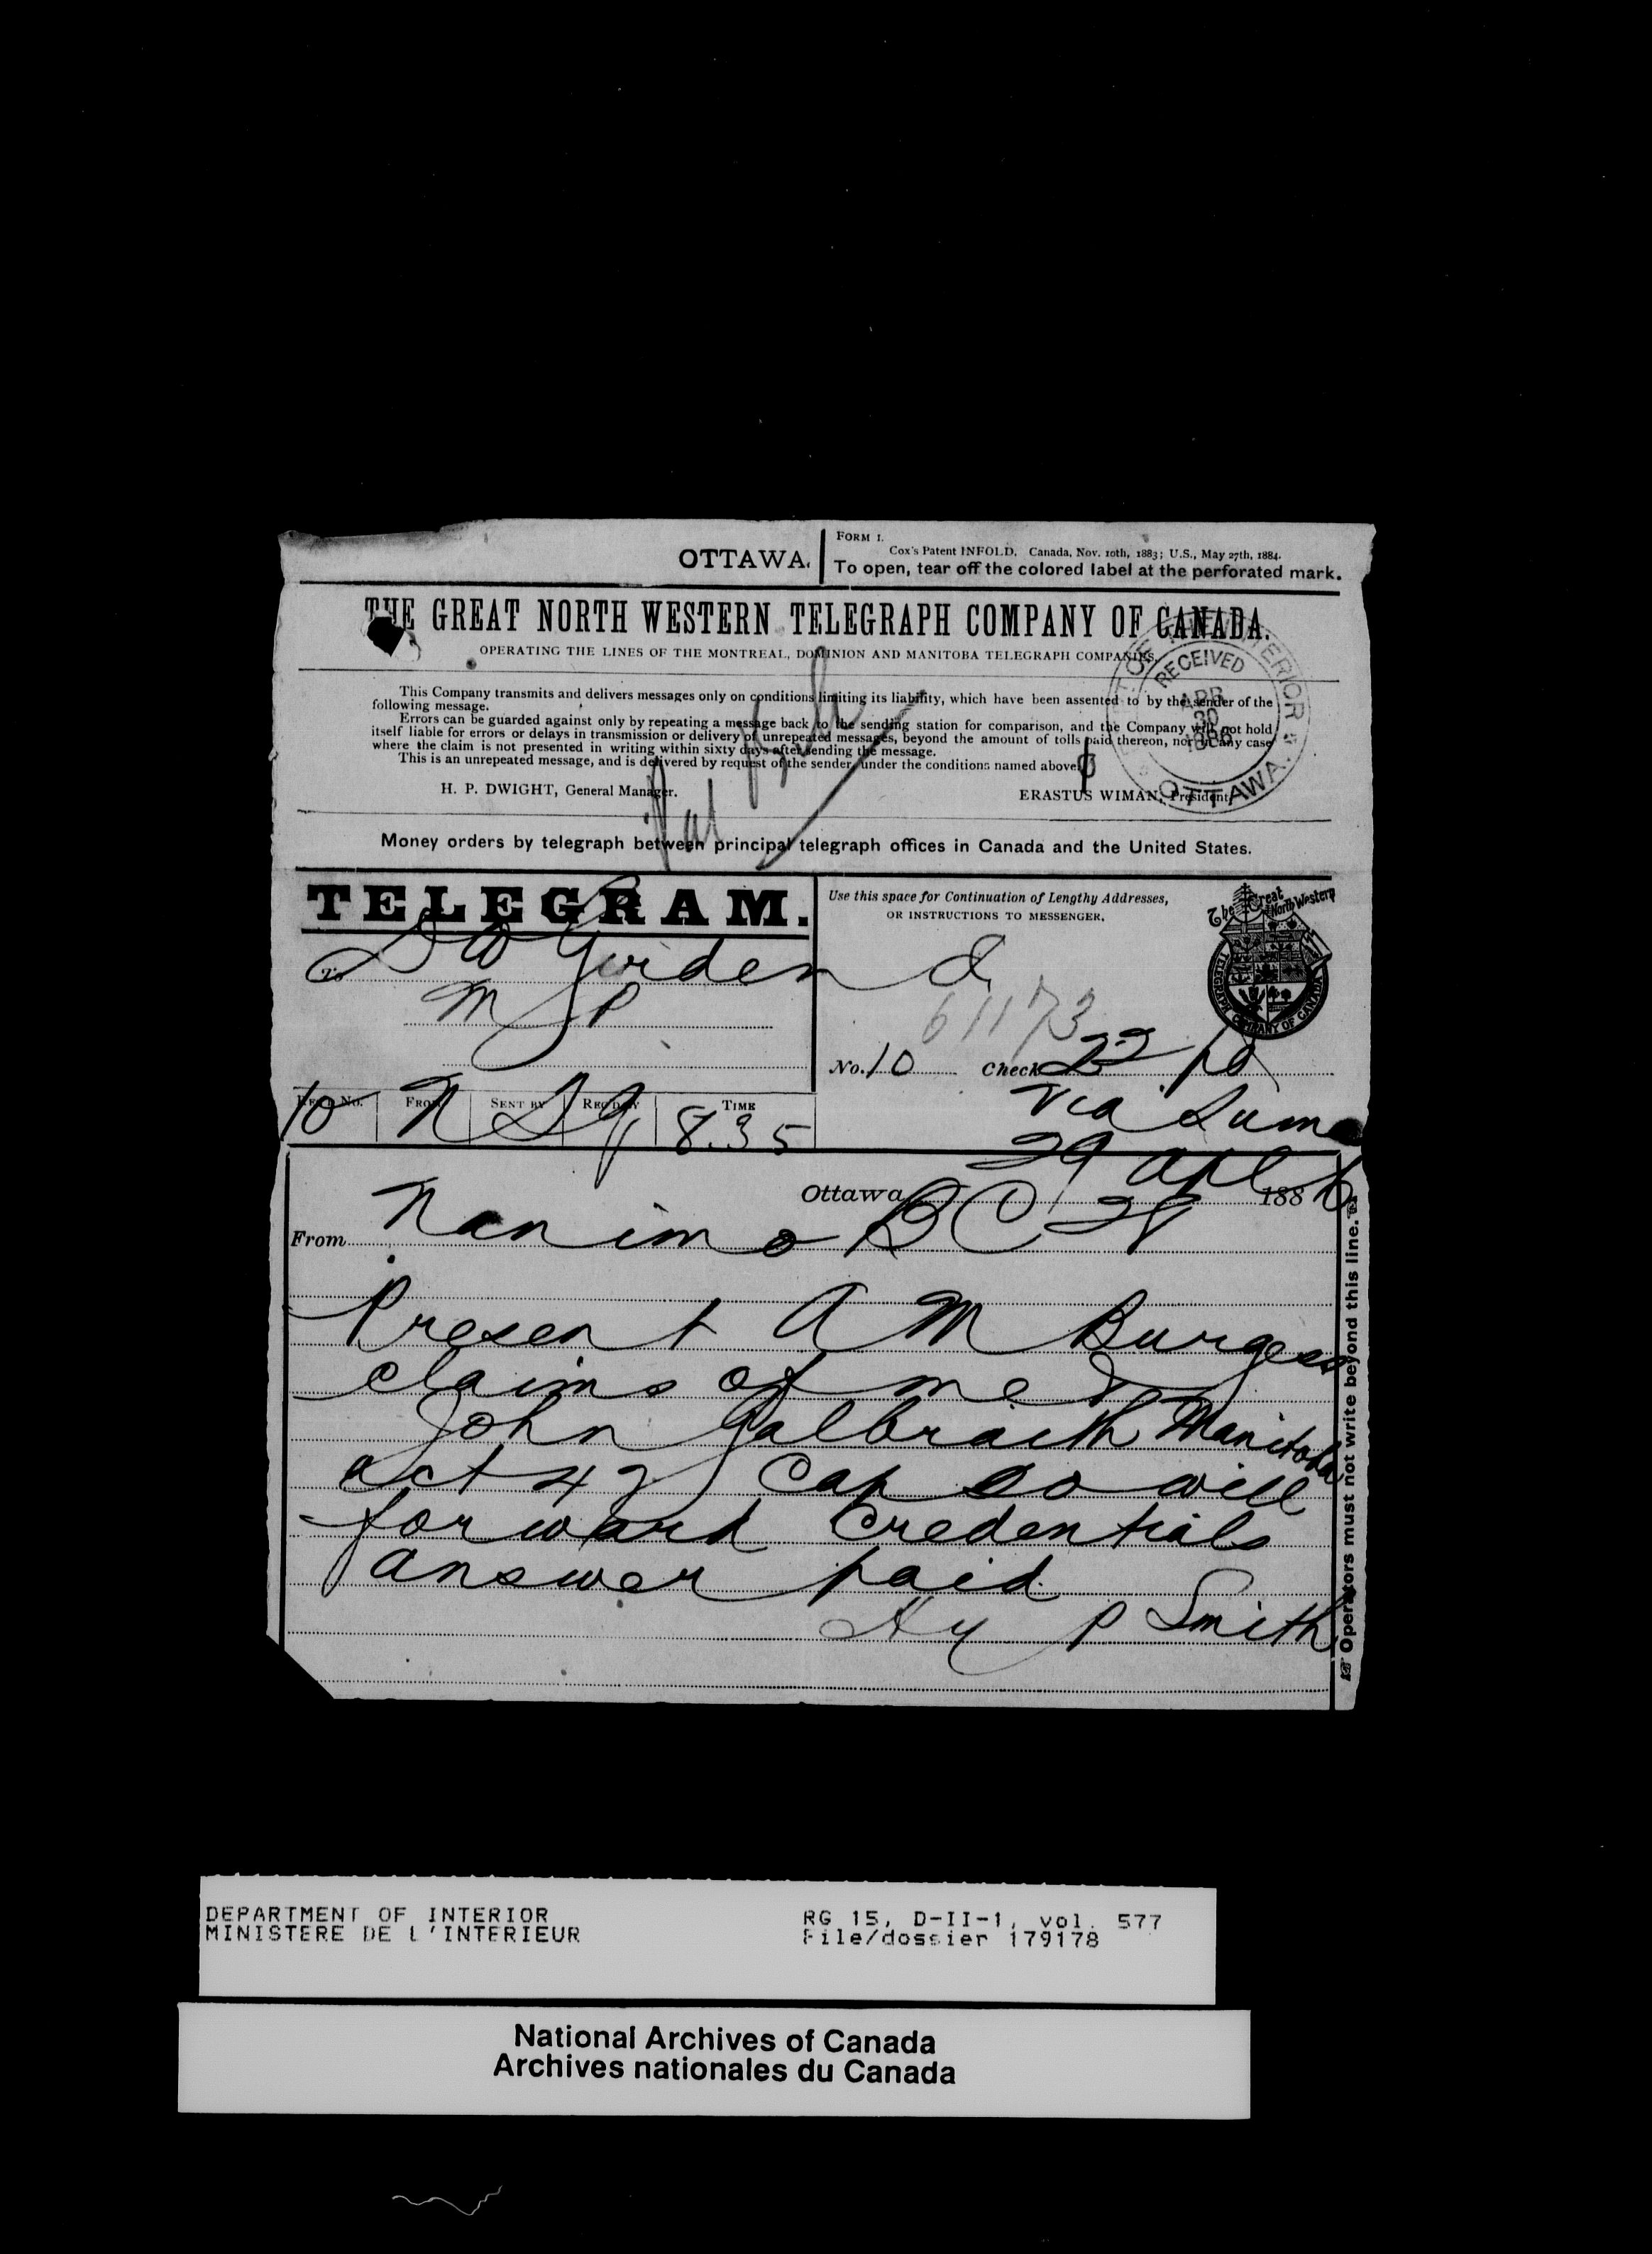 OTTAWA.
FORM 1.
Cox's Patent INFOLD. Canada, Nov. 10th, 1883; U.S., May 27th, 1884.
To open, tear off the colored label at the perforated mark.
THE GREAT NORTH WESTERN TELEGRAPH COMPANY OF CANADA.
OPERATING THE LINES OF THE MONTREAL, DOMINION AND MANITOBA TELEGRAPH COMPANIES.
RECEIVED
APR
30
1886
OTTAWA.
This Company transmits and delivers messages only on conditions limiting its liability, which have been assented to by the sender of the
following message.
Errors can be guarded against only by repeating a message back to the sending station for comparison, and the Company will not hold
itself liable for errors or delays in transmission or delivery of unrepeated messages, beyond the amount of tolls paid thereon, nor in any case
where the claim is not presented in writing within sixty days after sending the message.
This is an unrepeated message, and is delivered by request of the sender, under the conditions named above.
H. P. DWIGHT, General Manager.
ERASTUS WIMAN, President.
Money orders by telegraph between principal telegraph offices in Canada and the United States.
TELEGRAM.
Use this space for Continuation of Lengthy Addresses,
OR INSTRUCTIONS TO MESSENGER.
The Great North Western
TELEGRAPH COMPANY OF CANADA
To D W Gordon
M P
61173
No. 10 Check 22 pd
Via
REC'D No. FROM SENT BY REC'D BY TIME
10 N 8.35
29 Apl 1886
Ottawa
From Nanimo BC 28
Present A M Burgess
claims of me &
John Galbraith Manitoba
act 42 Cap 20 will
forward Credentials
answer paid
Hy P Smith
Operators must not write beyond this line.
DEPARTMENT OF INTERIOR
MINISTERE DE L'INTERIEUR
RG 15, D-II-1, vol. 577
File/dossier 179178
National Archives of Canada
Archives nationales du Canada